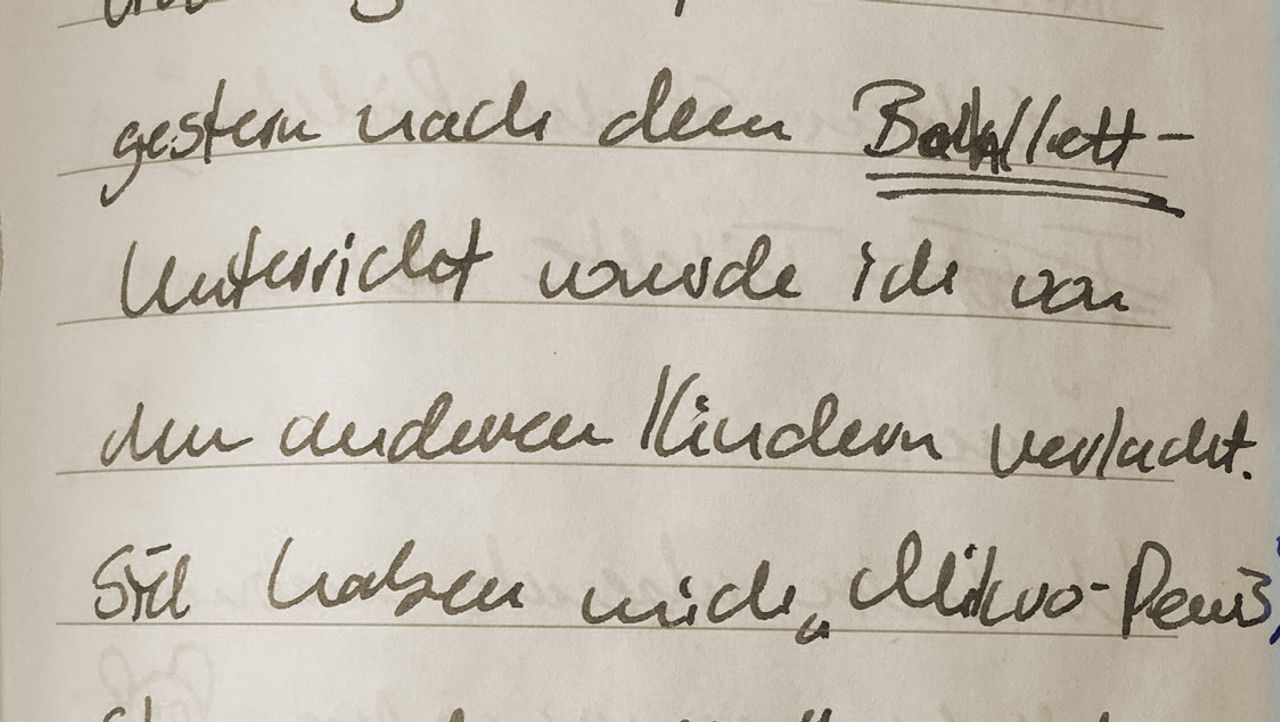 gestern nach dem Ballett-
Unterricht wurde ich von
den anderen Kindern verlacht.
Sie haben mich „Mikro-Penis